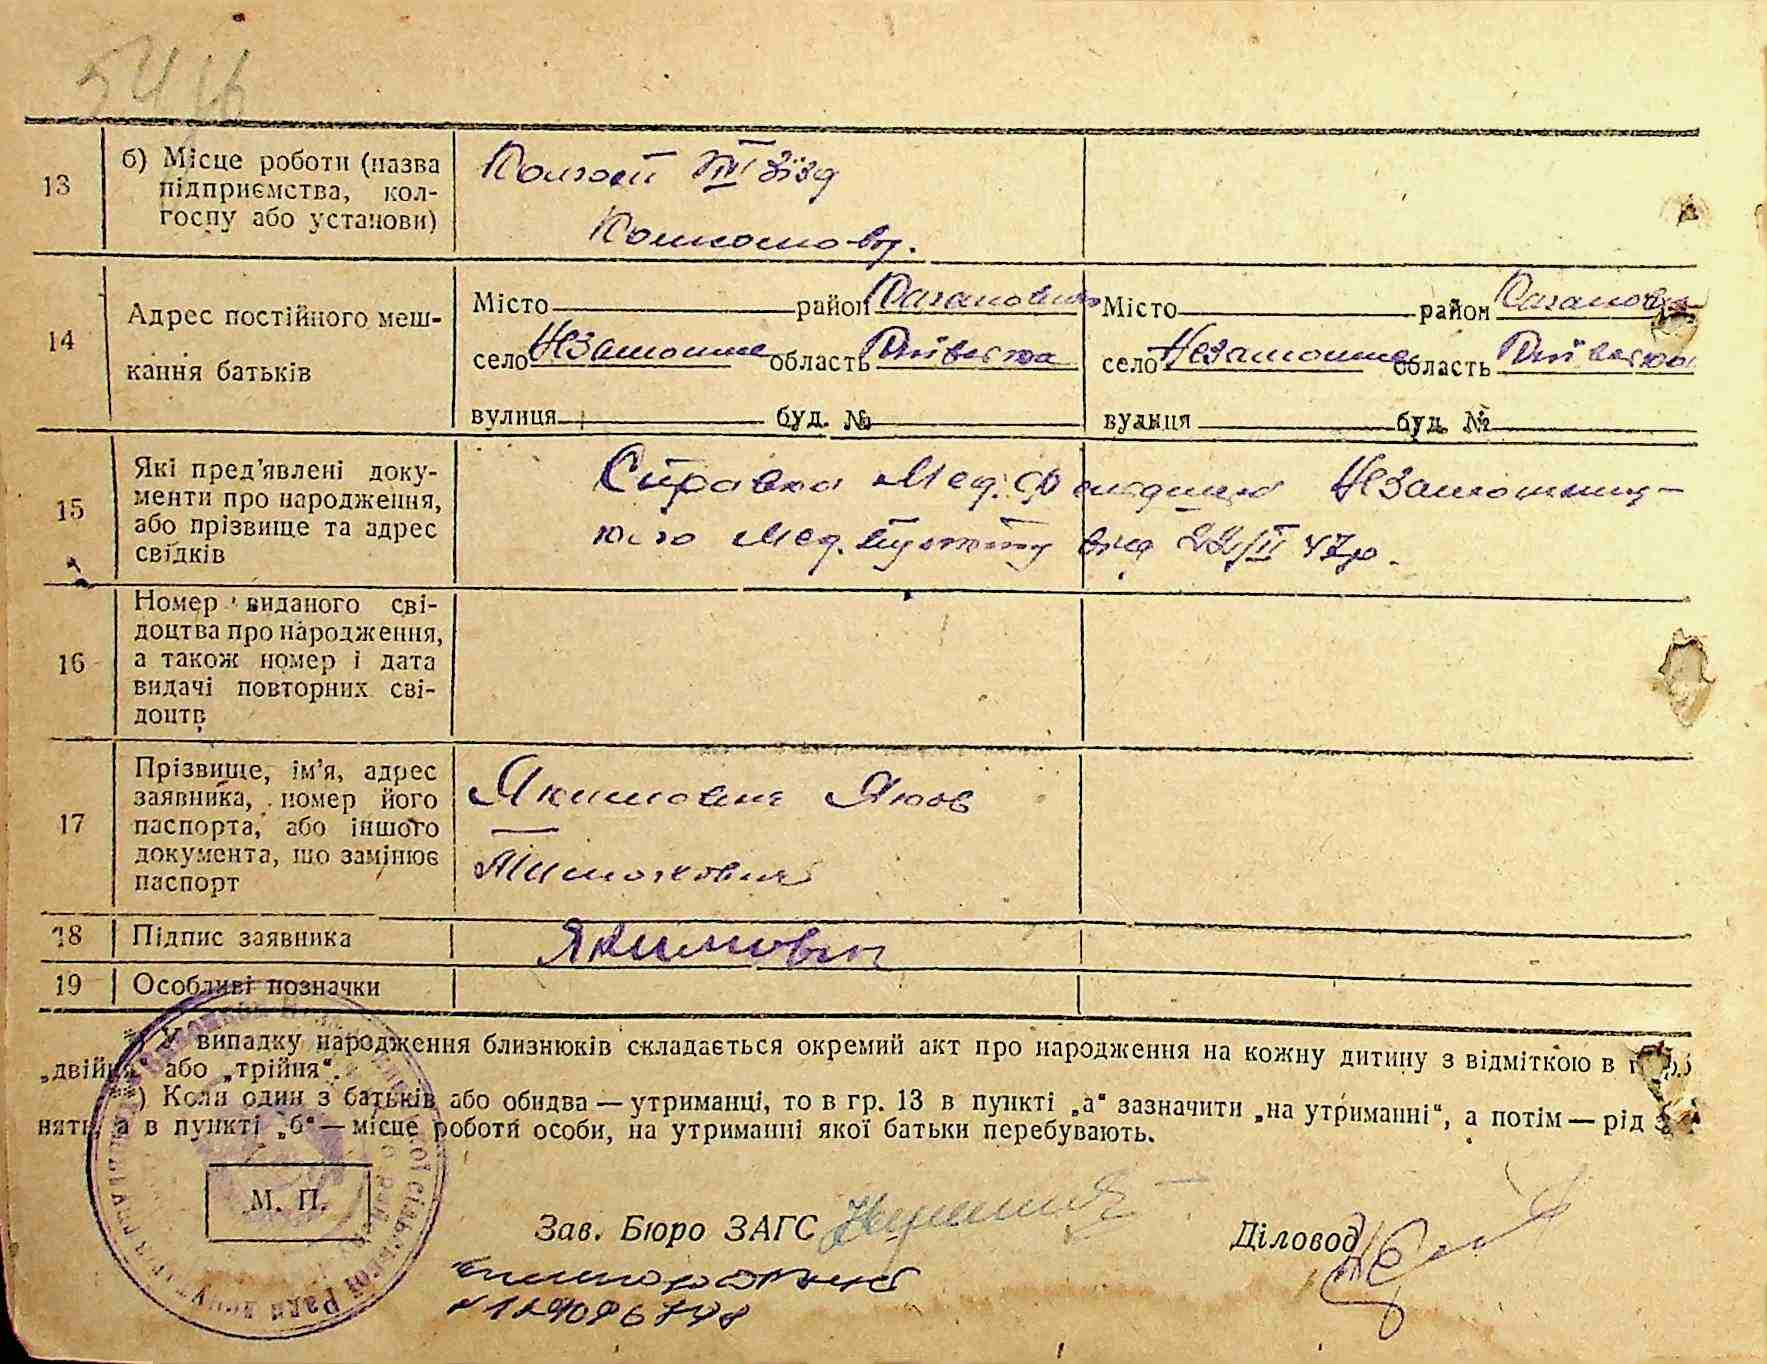 13
б) Місце роботи (назва
підприємства, кол-
госпу або установи)
Колгосп VIII Зїзд
14
Адрес постійного меш-
кання батьків
Місто район Каганович
село Незаможне область Київська
вулиця буд. №
Місто район Каганович
село Незаможне область Київська
вулиця буд. №
15
Які пред'явлені доку-
менти про народження,
або прізвище та адрес
свідків
Справка Мед. Фельдшера Незаможниц-
кого Мед. пункту від 47р.
16
Номер виданого сві-
доцтва про народження,
а також номер і дата
видачі повторних сві-
доцтв
17
Прізвище, ім'я, адрес
заявника, номер його
паспорта, або іншого
документа, що замінює
паспорт
Якимович Яков
Тимохович
18
Підпис заявника
Якимович
19
Особливі позначки
*) У випадку народження близнюків складається окремий акт про народження на кожну дитину з відміткою в
„двійня" або „трійня".
**) Коли один з батьків або обидва — утриманці, то в гр. 13 в пункті „а" зазначити „на утриманні", а потім — рід
няття, а в пункті „б" — місце роботи особи, на утриманні якої батьки перебувають.
М. П.
Зав. Бюро ЗАГС
Діловод